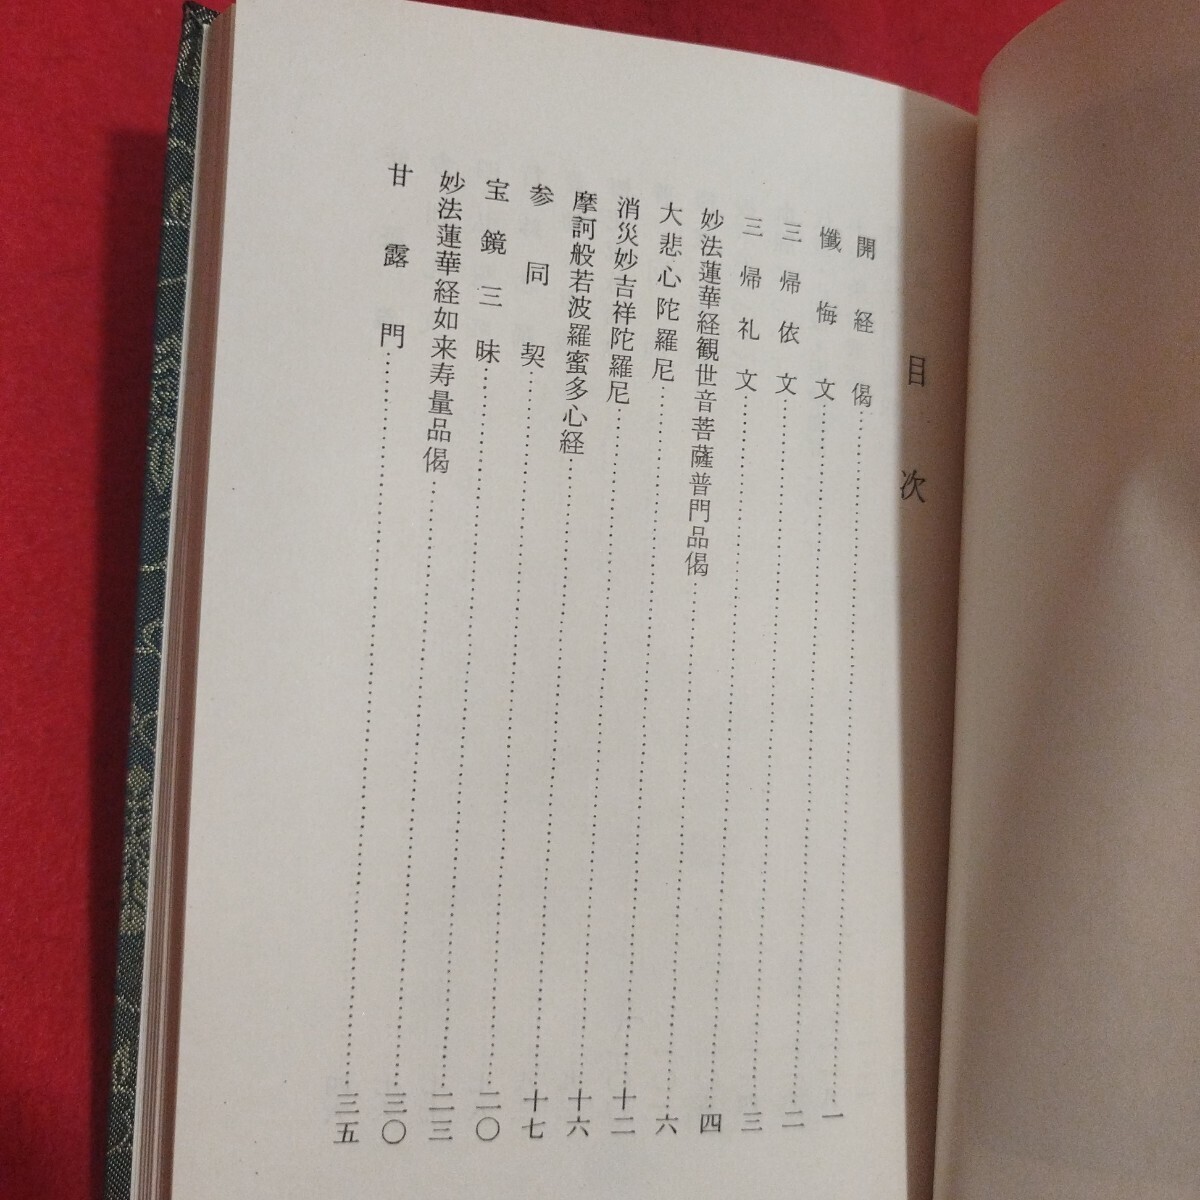 目次
開経偈……一
懺悔文……二
三帰依文……三
三帰礼文……四
妙法蓮華経観世音菩薩普門品偈……六
大悲心陀羅尼……十二
消災妙吉祥陀羅尼……十六
摩訶般若波羅蜜多心経……十七
参同契……二〇
宝鏡三昧……二三
妙法蓮華経如来寿量品偈……三〇
甘露門……三五